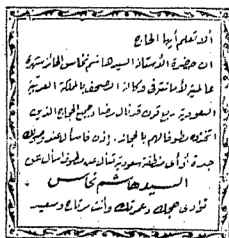 ألا تعلم أيها الحاج
ان حضرة الأستاذ السيد هاشم نحاس الحائز شهرة
عالمية لأمانته في وكالة الصحف بالمملكة العربية
السعودية سيكون قد نال رضاء جميع الحجاج الذين
اتخذوه مطوفا لهم بالحجاز، إذن فاسأل عند وصولك
جدة أو أي منطقة سعودية تسأل عن مطوف فسأل عن
السيد هاشم نحاس
تؤدى حجك وعمرتك وأنت مرتاح وسعيد